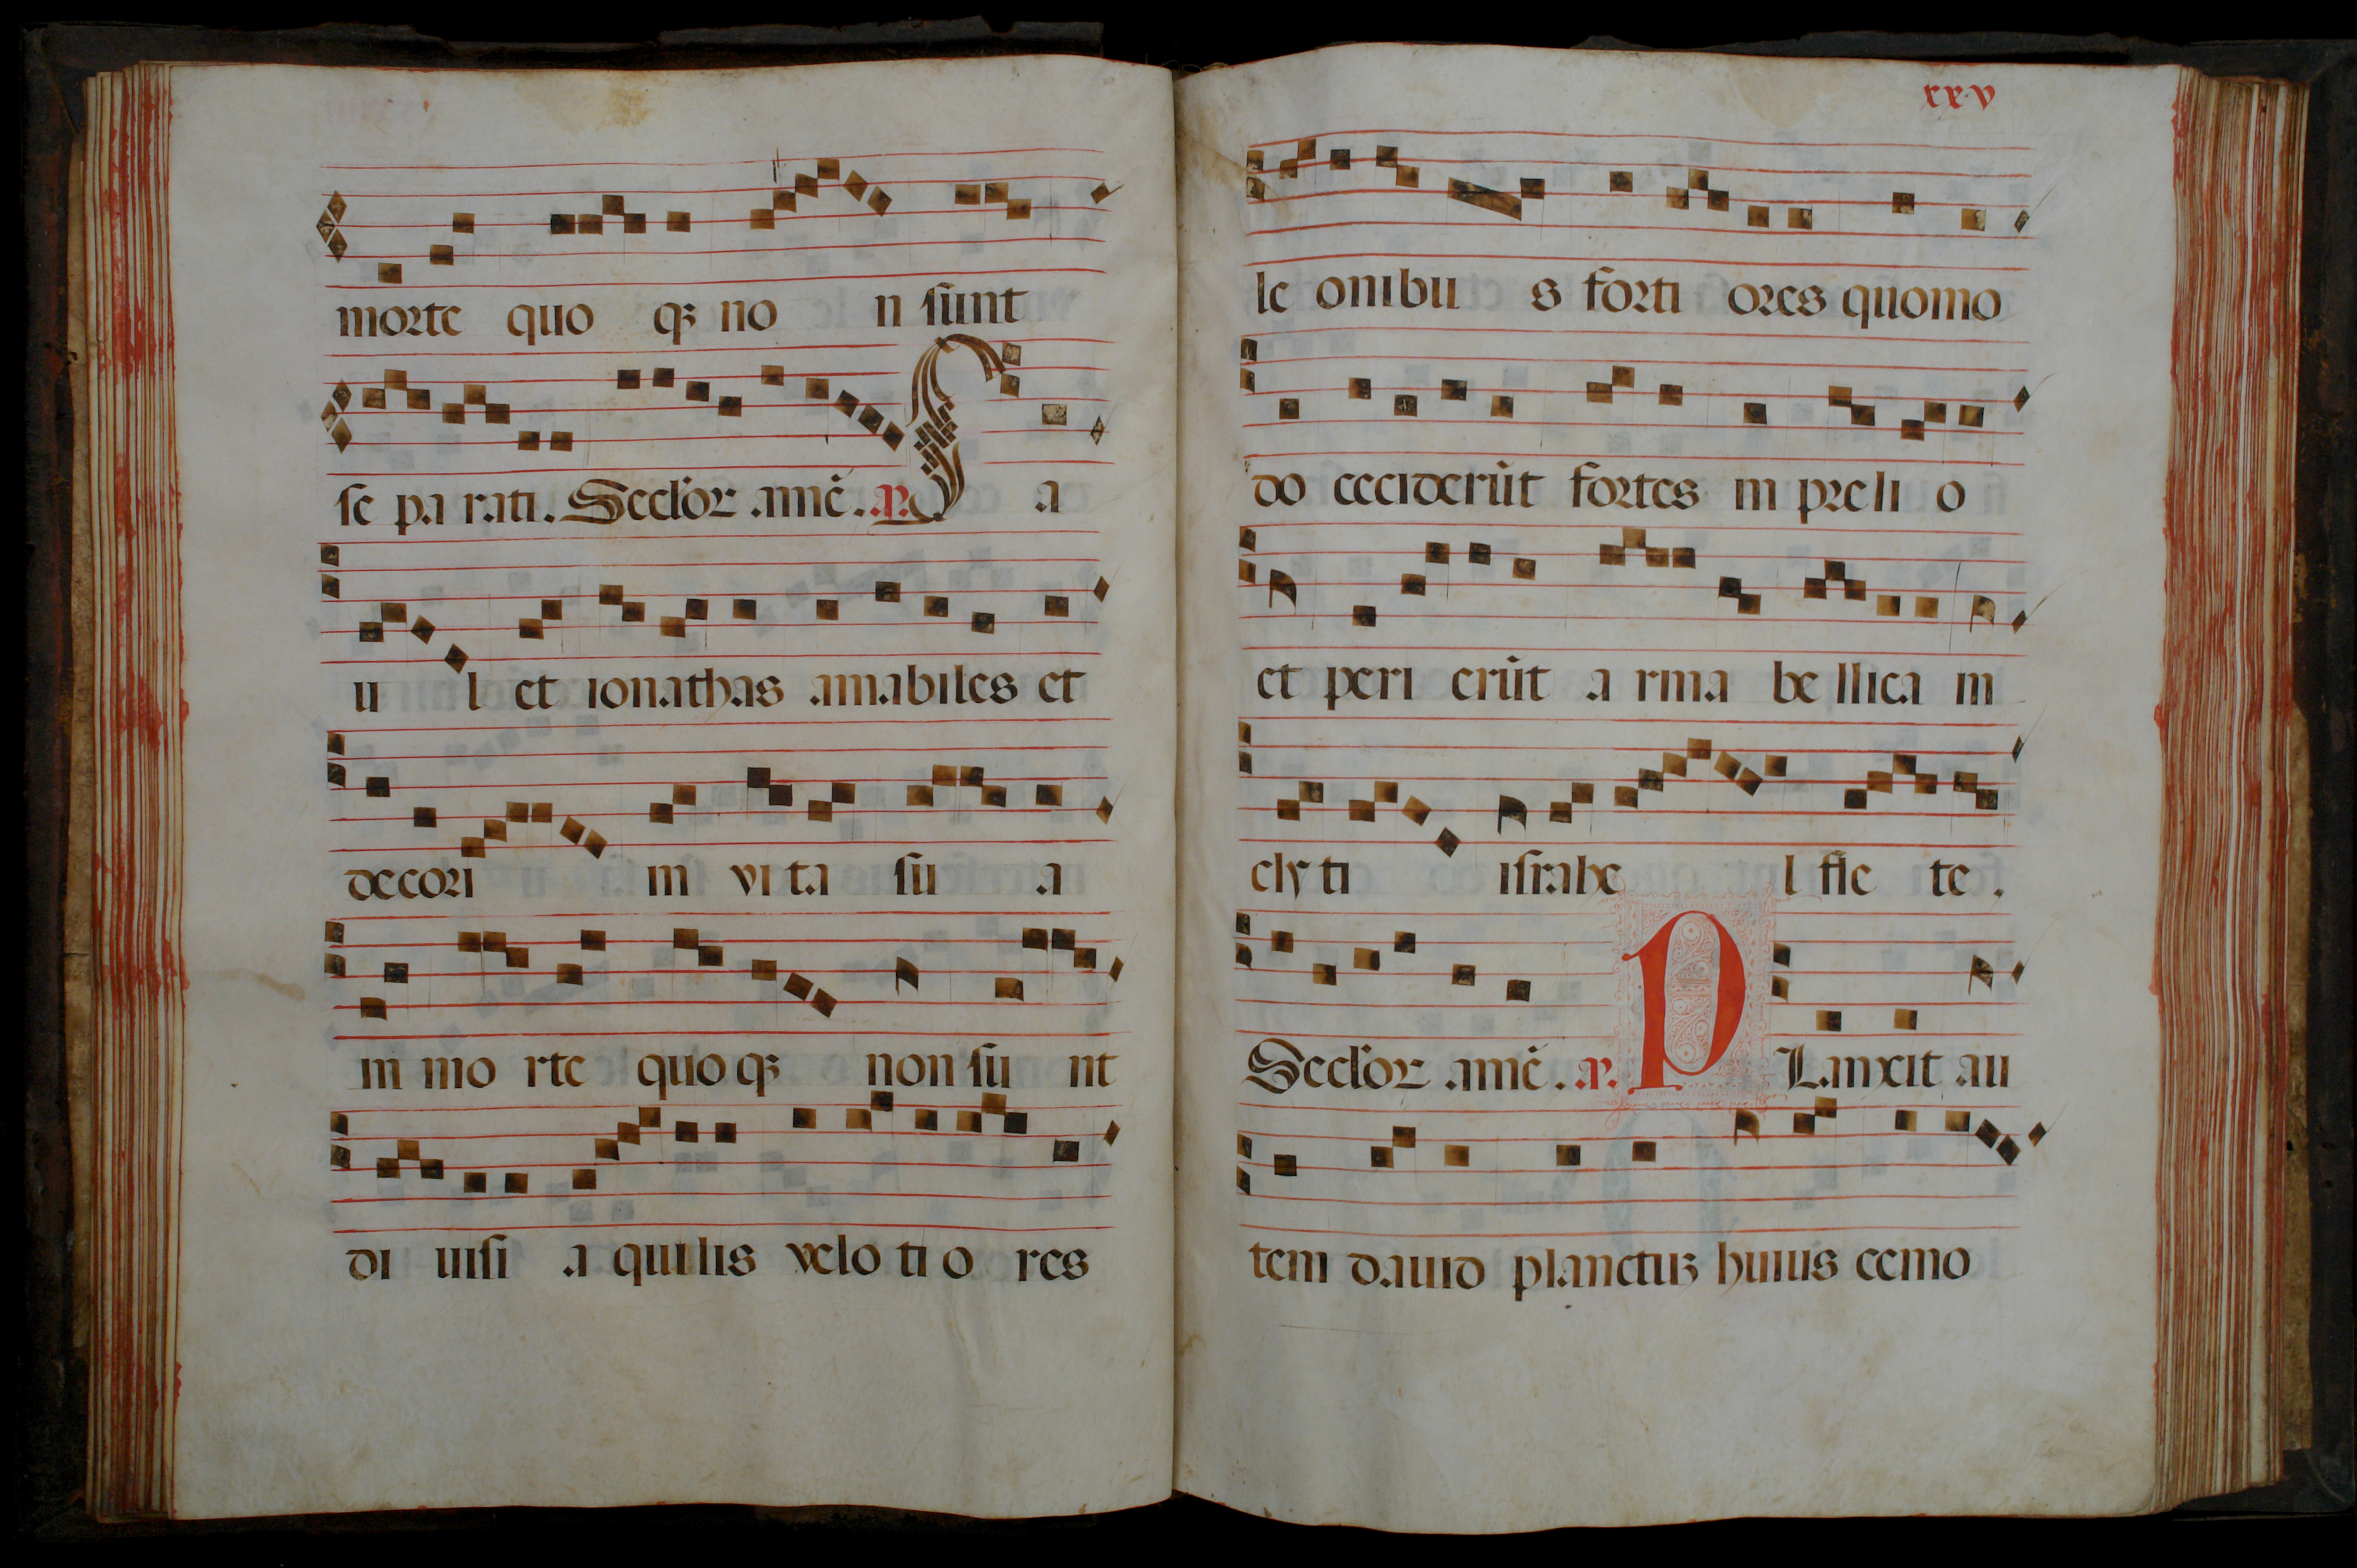 morte quo qꝫ no n sunt
se pa rati. Seclor amē. a. S a
u l et ionathas amabiles et
decori in vi ta su a
in mo rte quo qꝫ non su nt
di uisi a quilis velo ti o res
xxv
le onibu s forti ores quomo
do ceciderūt fortes in preli o
et peri erūt a rma be llica in
cly ti israhe l fle te.
Seclor amē. a. P Lanxit au
tem dauid planctuꝫ huius cemo